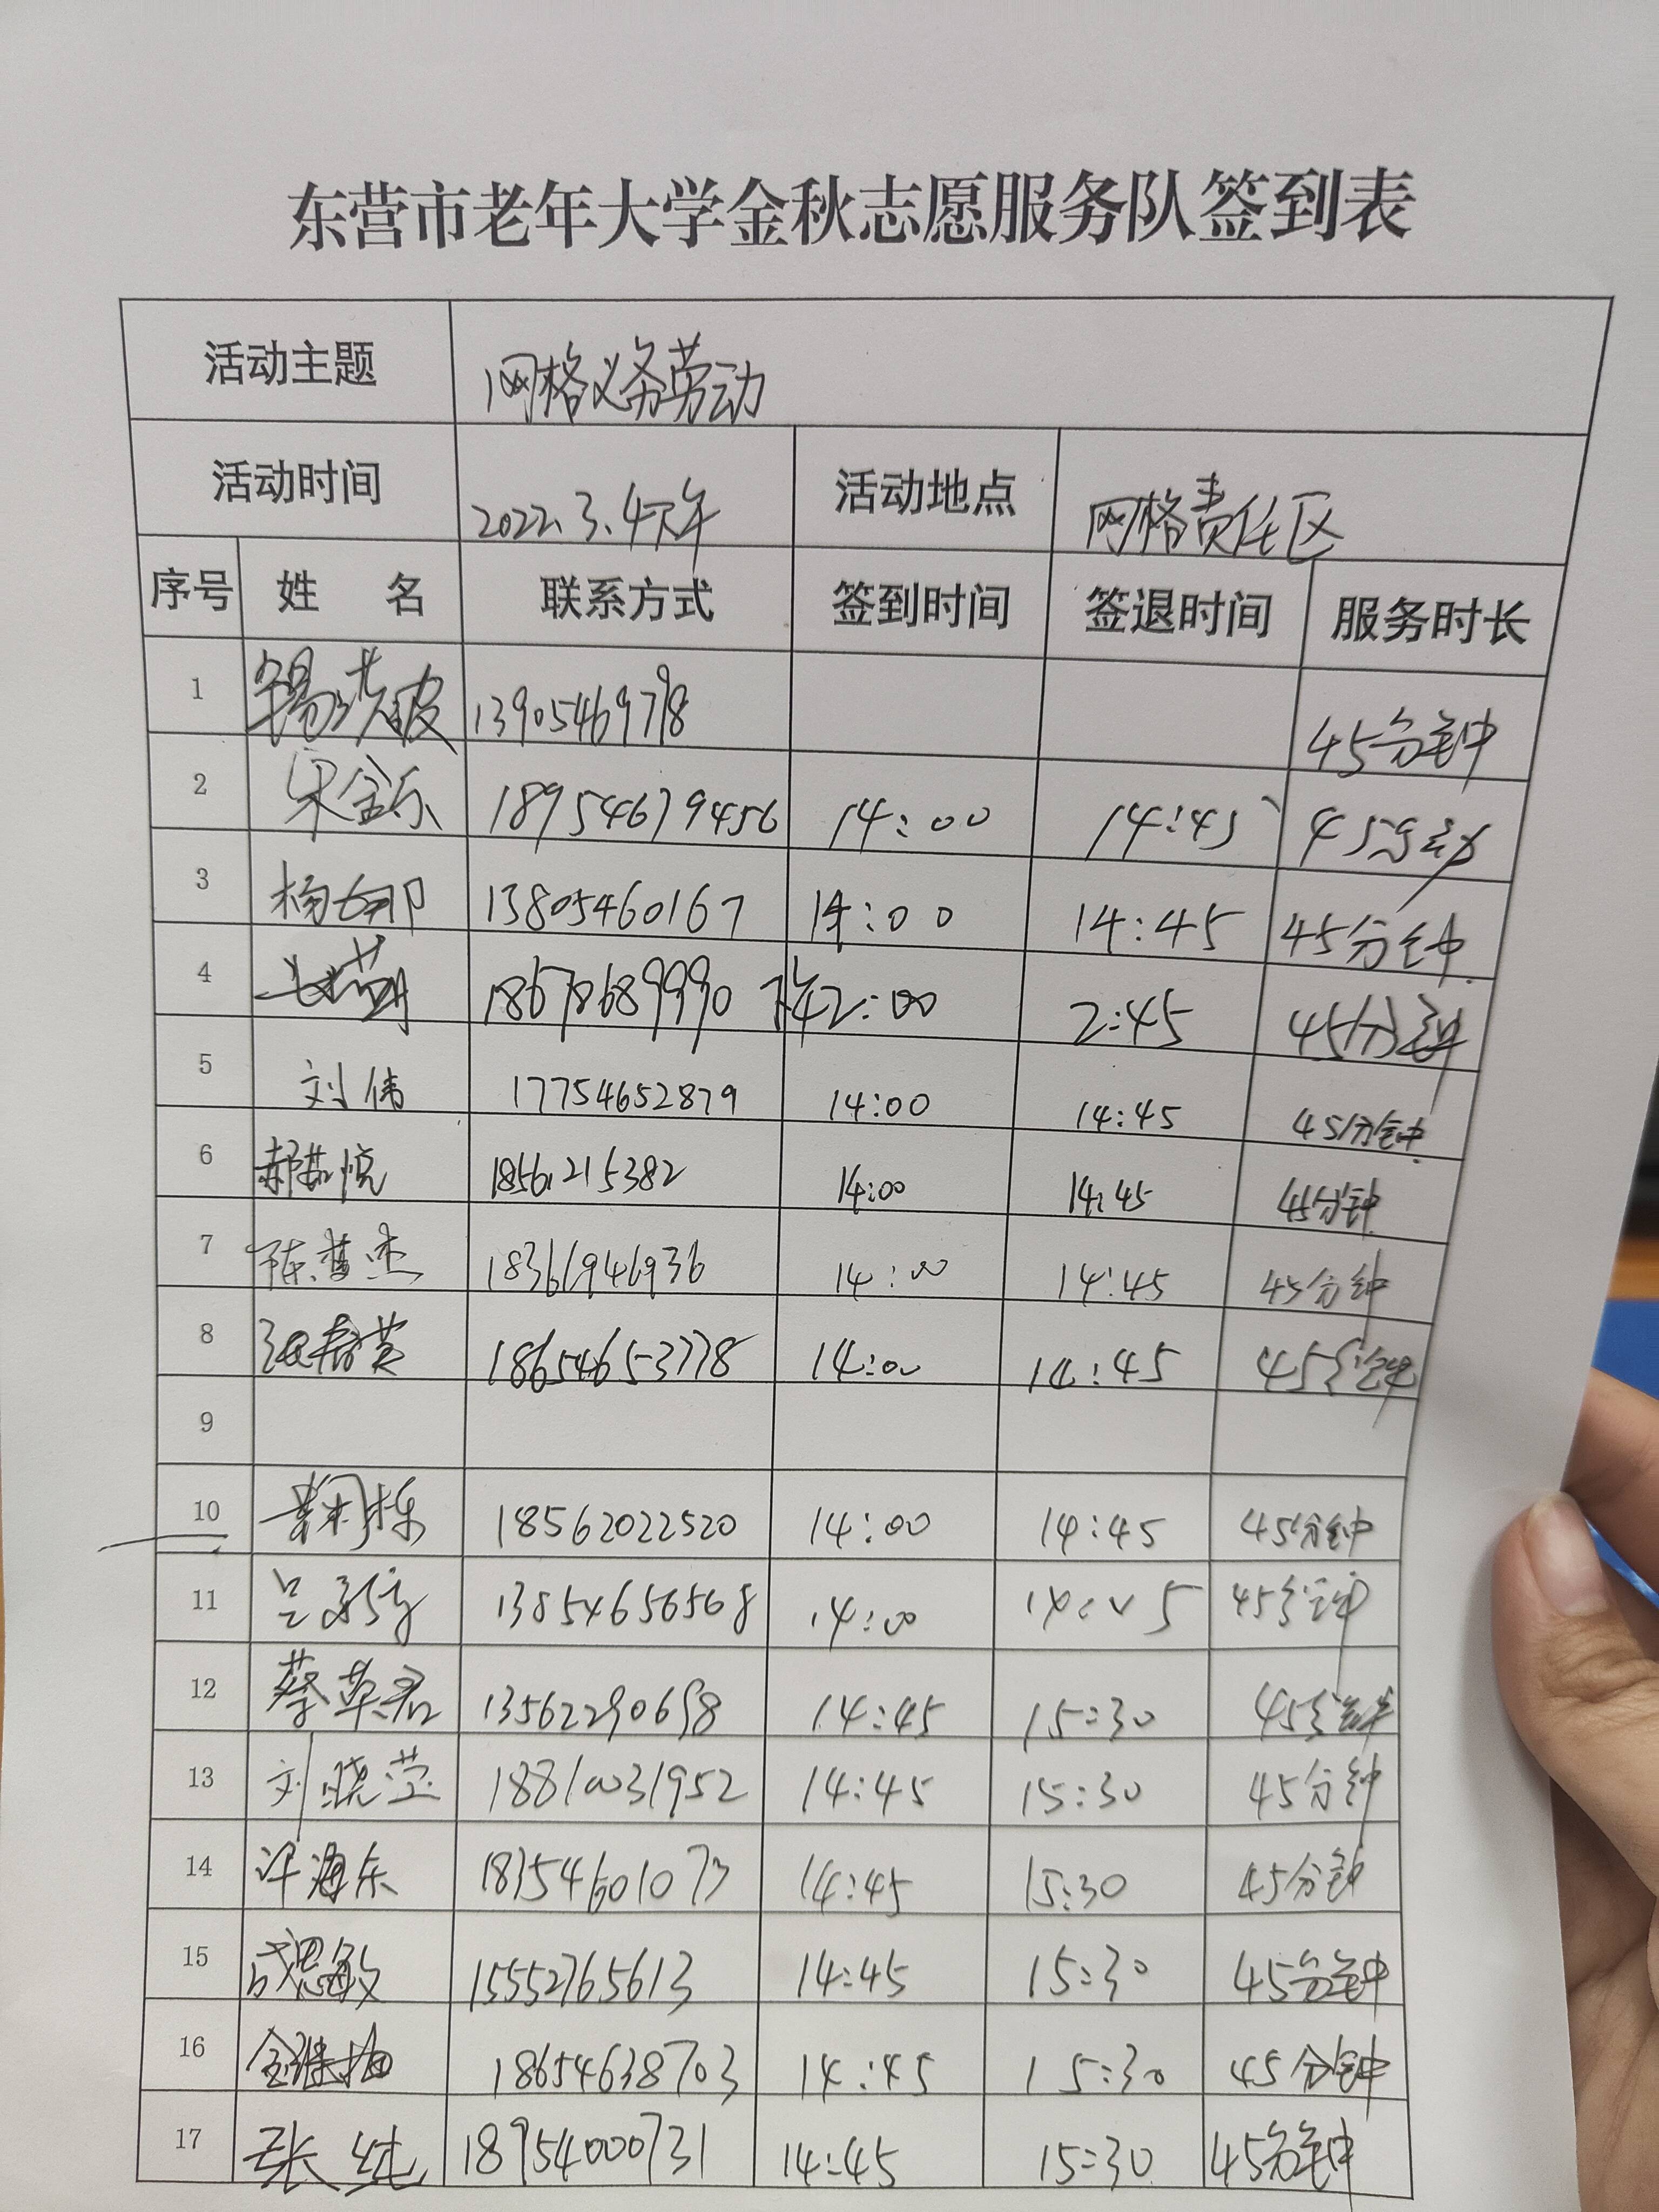 东营市老年大学金秋志愿服务队签到表
活动主题 网格义务劳动
活动时间 2022.3.4下午 活动地点 网格责任区
序号 姓 名 联系方式 签到时间 签退时间 服务时长
1 45分钟
2 宋金乐 18954679456 14:00 14:45 45分钟
3 杨娜 13805460167 14:00 14:45 45分钟
4 18678689990 下午2:00 2:45 45分钟
5 刘伟 17754652879 14:00 14:45 45分钟
6 郝茹悦 18561215382 14:00 14:45 45分钟
7 陈 杰 18361946936 14:00 14:45 45分钟
8 张春英 18654653778 14:00 14:45 45分钟
9
10 18562022520 14:00 14:45 45分钟
11 吕 13854656568 14:00 14:45 45分钟
12 蔡草君 13562290698 14:45 15:30 45分钟
13 刘晓莹 18810031952 14:45 15:30 45分钟
14 许海乐 18354601073 14:45 15:30 45分钟
15 成思敏 15552765613 14:45 15:30 45分钟
16 18654638703 14:45 15:30 45分钟
17 张纯 18954000731 14:45 15:30 45分钟